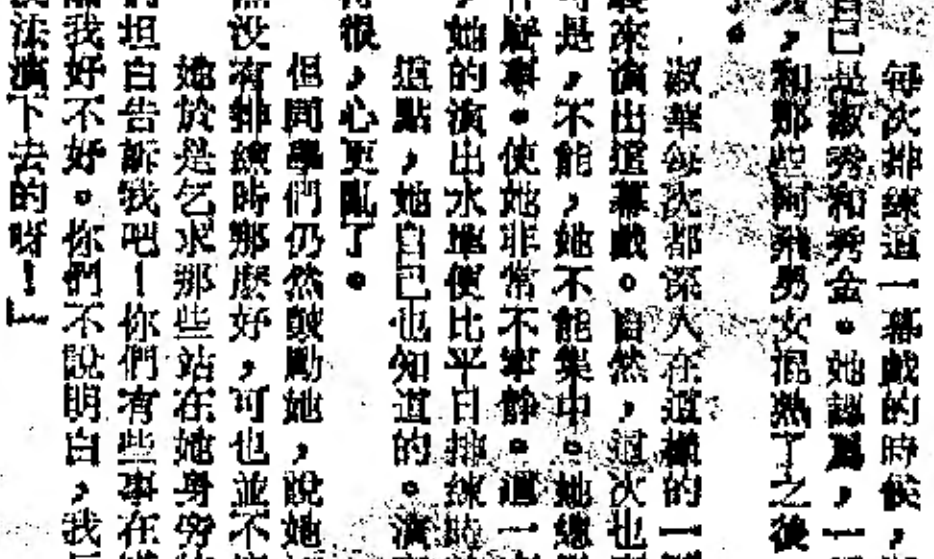 每次排練這一幕戲的時候，
自己是淑秀和秀金。她認爲，一
，和那些阿飛男女混熟了之後
。
淑華每次都深入在這樣的一
來演出這幕戲。自然，這次也
是，不能，她不能集中。她總
事。使她非常不寧靜。這一
，她的演出水準便比平日排練時
這點，她自己也知道的。演
很，心更亂了。
但同學們仍然鼓勵她，說她
没有排練時那麼好，可也並不
她於是乞求那些站在她身旁
坦白告訴我吧！你們有些事在
我好不好。你們不說明白，我
法演下去的呀！」